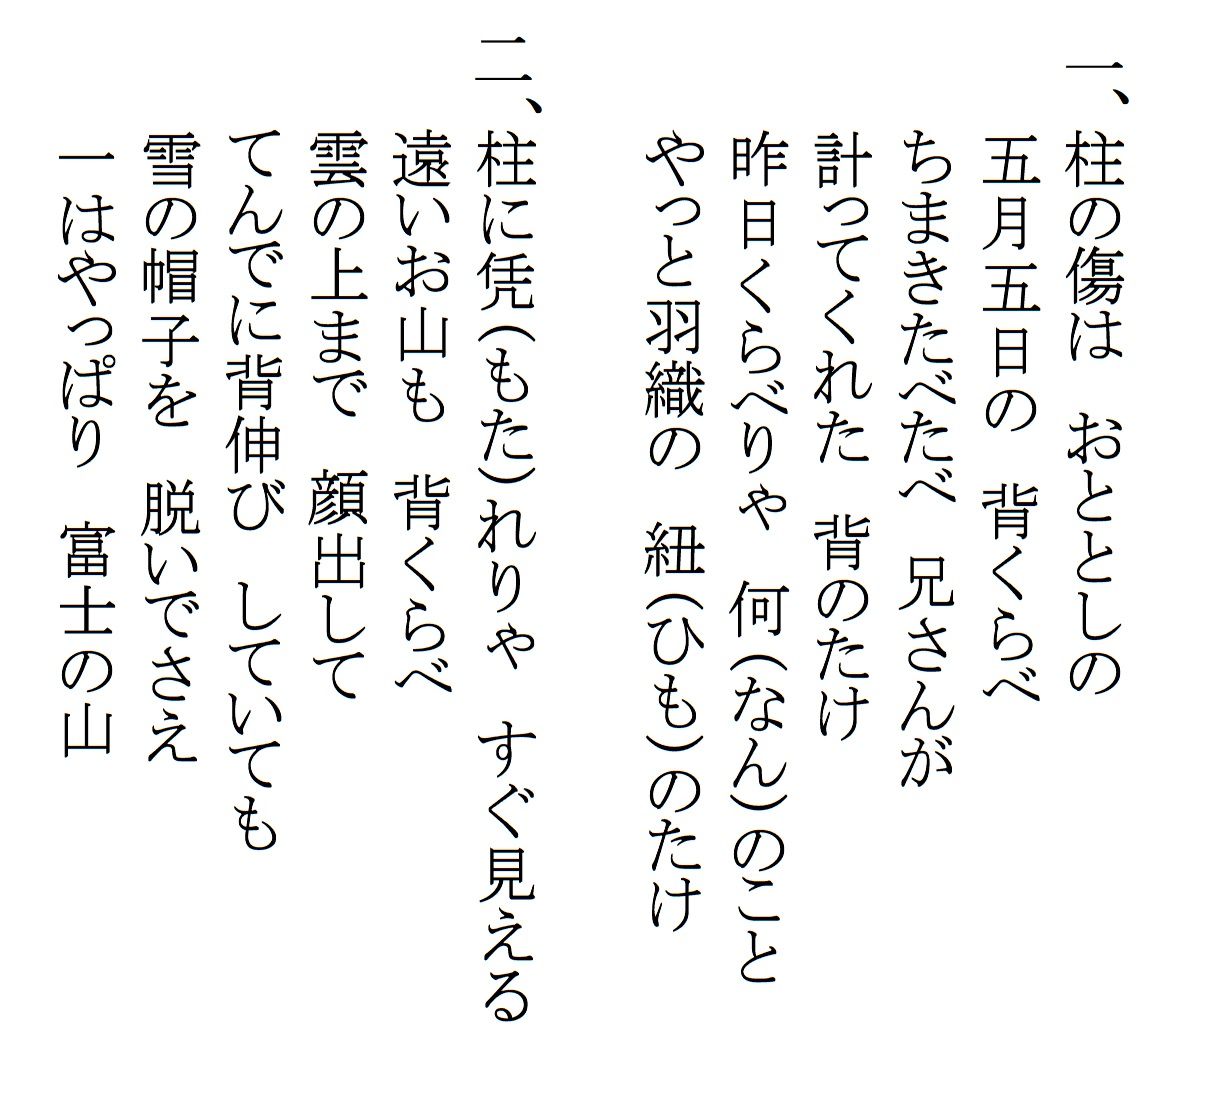 一、柱の傷は　おととしの
五月五日の　背くらべ
ちまきたべたべ　兄さんが
計ってくれた　背のたけ
昨日くらべりゃ　何(なん)のこと
やっと羽織の　紐(ひも)のたけ
二、柱に凭(もた)れりゃ　すぐ見える
遠いお山も　背くらべ
雲の上まで　顔出して
てんでに背伸び　していても
雪の帽子を　脱いでさえ
一はやっぱり　富士の山